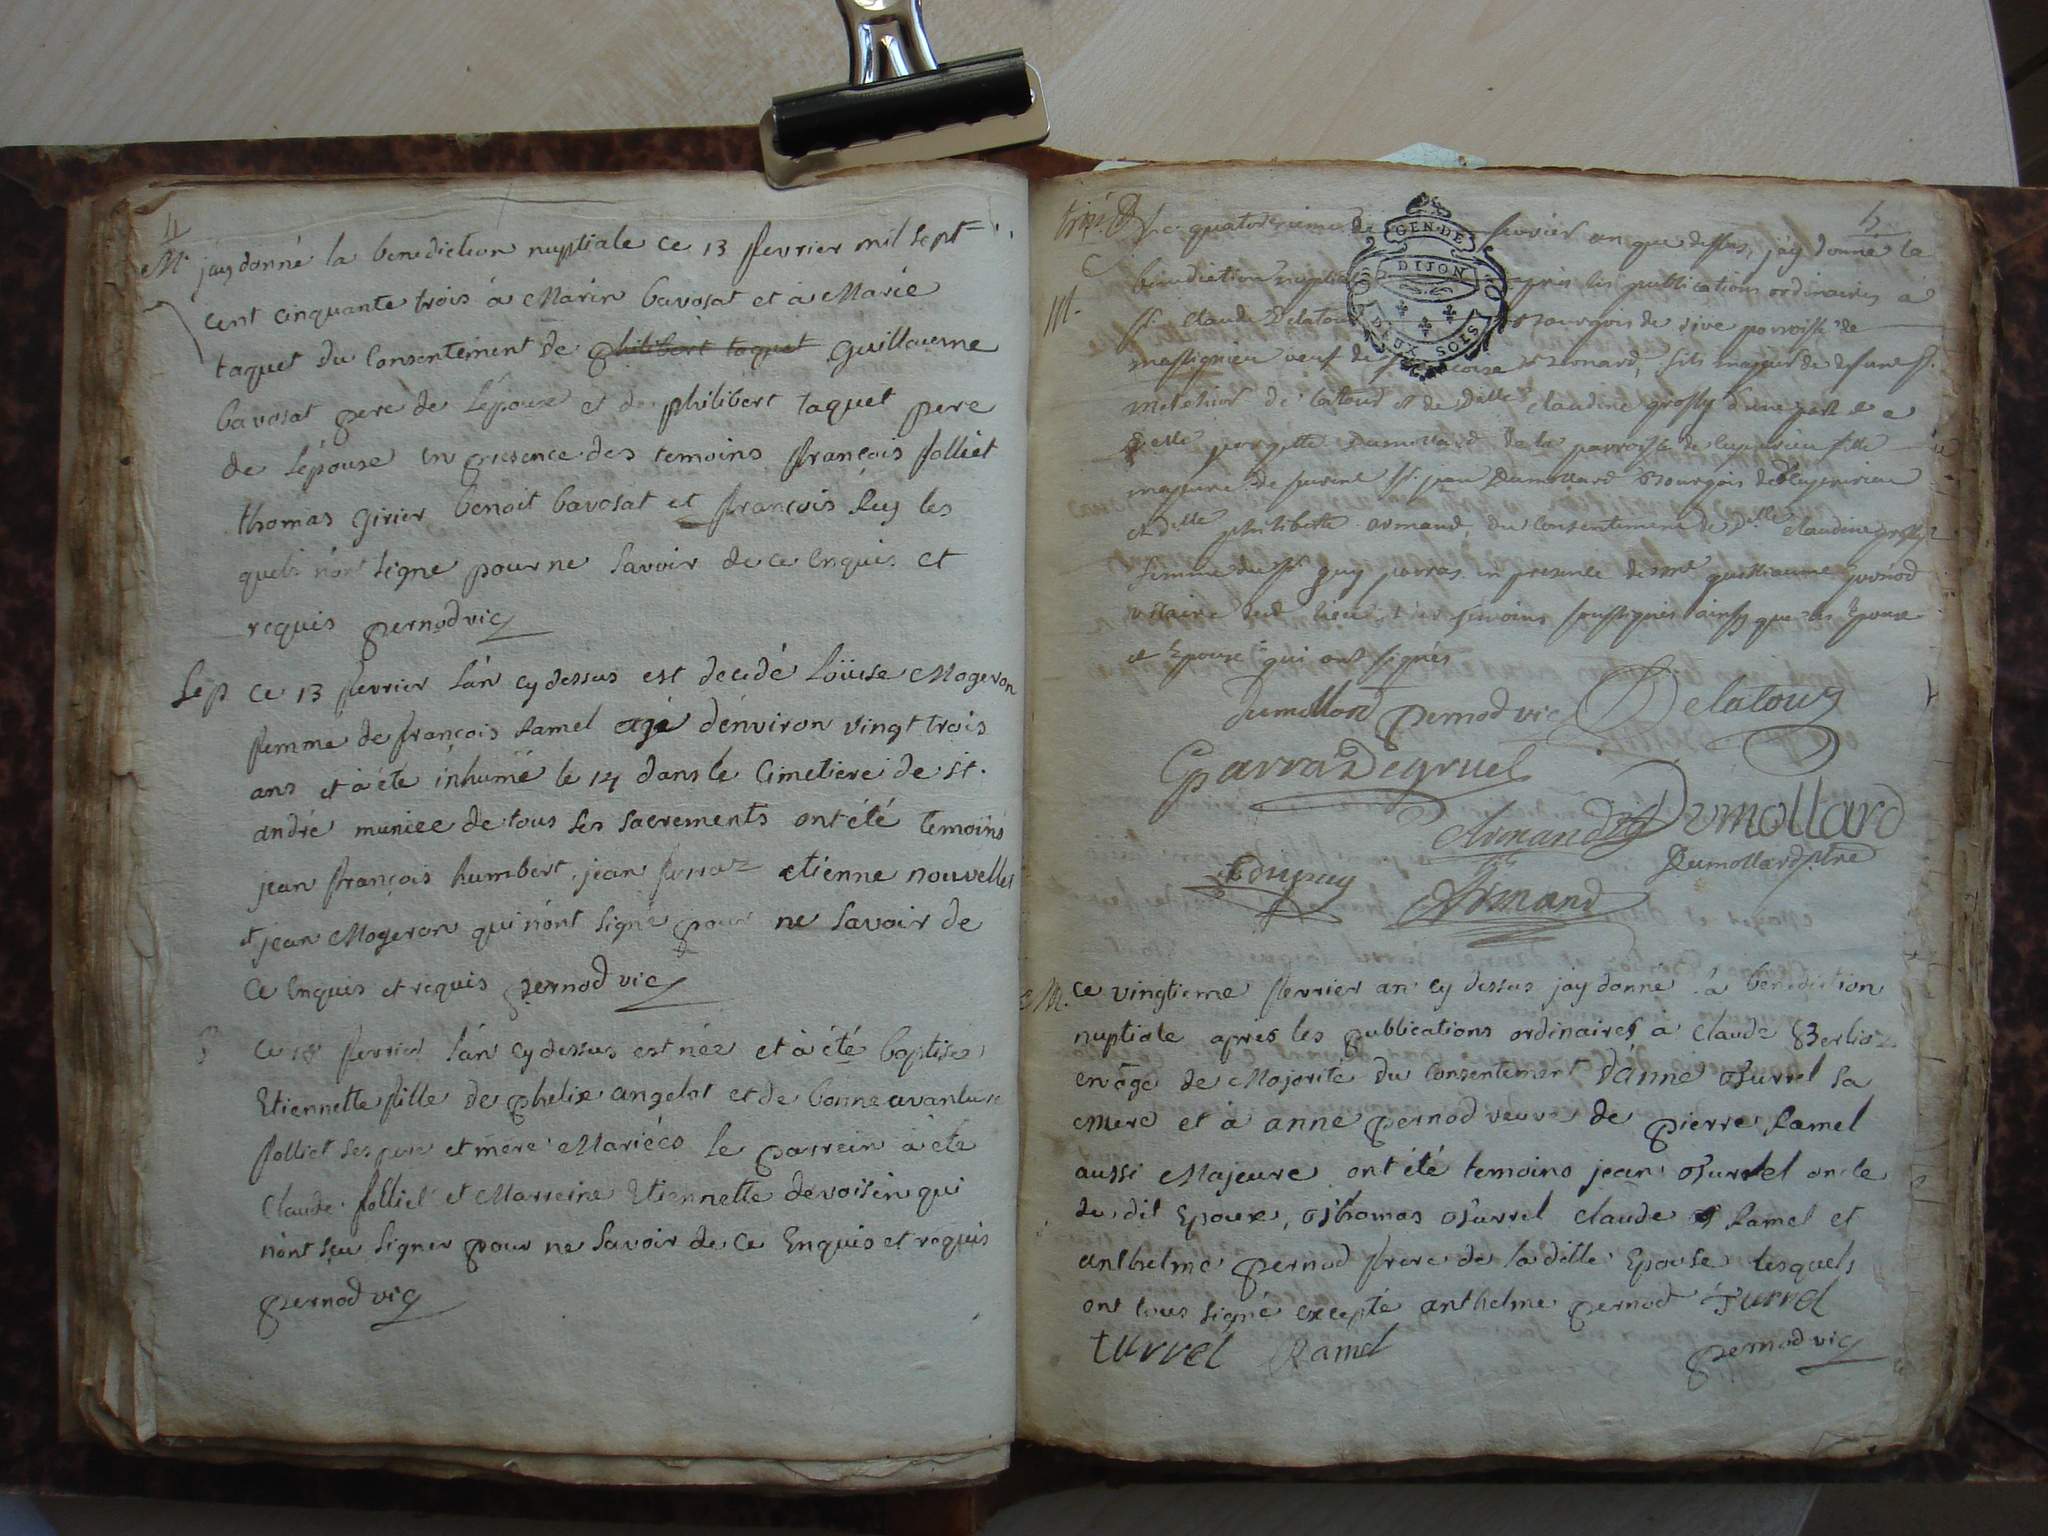 4
M. jay donné la benediction nuptiale ce 13 fevrier mil sept
cent cinquante trois à Marin bavosat et à Marie
taquet du consentement de philibert taquet guillaume
bavosat pere de l'époux et de philibert taquet pere
de l'épouse en presence des temoins françois folliet
thomas girier benoit bavosat et françois Rey les
quels n'ont signe pour ne savoir de ce enquis et
requis pernod vic
Sep ce 13 fevrier l'an cy dessus est decedé Loüise Mogeron
femme de françois Ramel agé d'environ vingt trois
ans et à été inhumé le 14 dans le cimetiere de st.
andré muniee de tous ses sacrements ont été temoins
jean françois humbert jean ferraz etienne nouvelles
et jean Mogeron qui n'ont signé pour ne savoir de
ce enquis et requis pernod vic
ce fevrier l'an cy dessus est née et à été baptisee
Etiennette fille de phelix angelot et de bonne avanture
folliet ses pere et mere Mariées le parrein à été
Claude folliet et Marreine Etiennette devoisin qui
n'ont sçu signer pour ne savoir de ce Enquis et requis
pernod vic
5
GEN. DE
DIJON
DEUX SOLS
quatorzieme fevrier an que dessus, j'ay donné la
M. benediction nuptiale apres les publications ordinaires a
sr. Claude Delatour Bourgois de rive parroisse de
massignieu veuf de Monard, fils majeur de defunt sr.
melchior de latour et de Dlle claudine grossy d'une part et a
Delle Dumollard de la parroisse de fille
majeure de sr. jean Dumollard Bourgois de
et dlle philiberte armand, du consentement de dlle Claudine grossy
femme du sr guy parras en presence de mre guillaume pernod
vicaire dud lieu et des temoins soussignés ainsy que les Epoux
et Epouse qui ont signés
Dumollard pernod vic Delatour
Gparra Degruel
Armand Dumollard
Dumollard ptre
Dupuy Armand
M. ce vingtieme fevrier an cy dessus jay donné la benediction
nuptiale apres les publications ordinaires à Claude Berlioz
en âge de Majorité du consentement d'anne Turrel sa
Mere et à anne pernod veuve de pierre Ramel
aussi Majeure ont été temoins jean Turrel oncle
du dit Epoux, Thomas Turrel claude Ramel et
anthelme pernod frere de la ditte Epouse lesquels
ont tous signé excepté anthelme pernod Turrel
turrel Ramel pernod vic